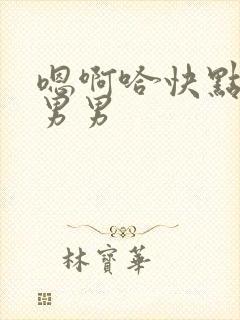 嗯啊哈快點
男男
林寶華